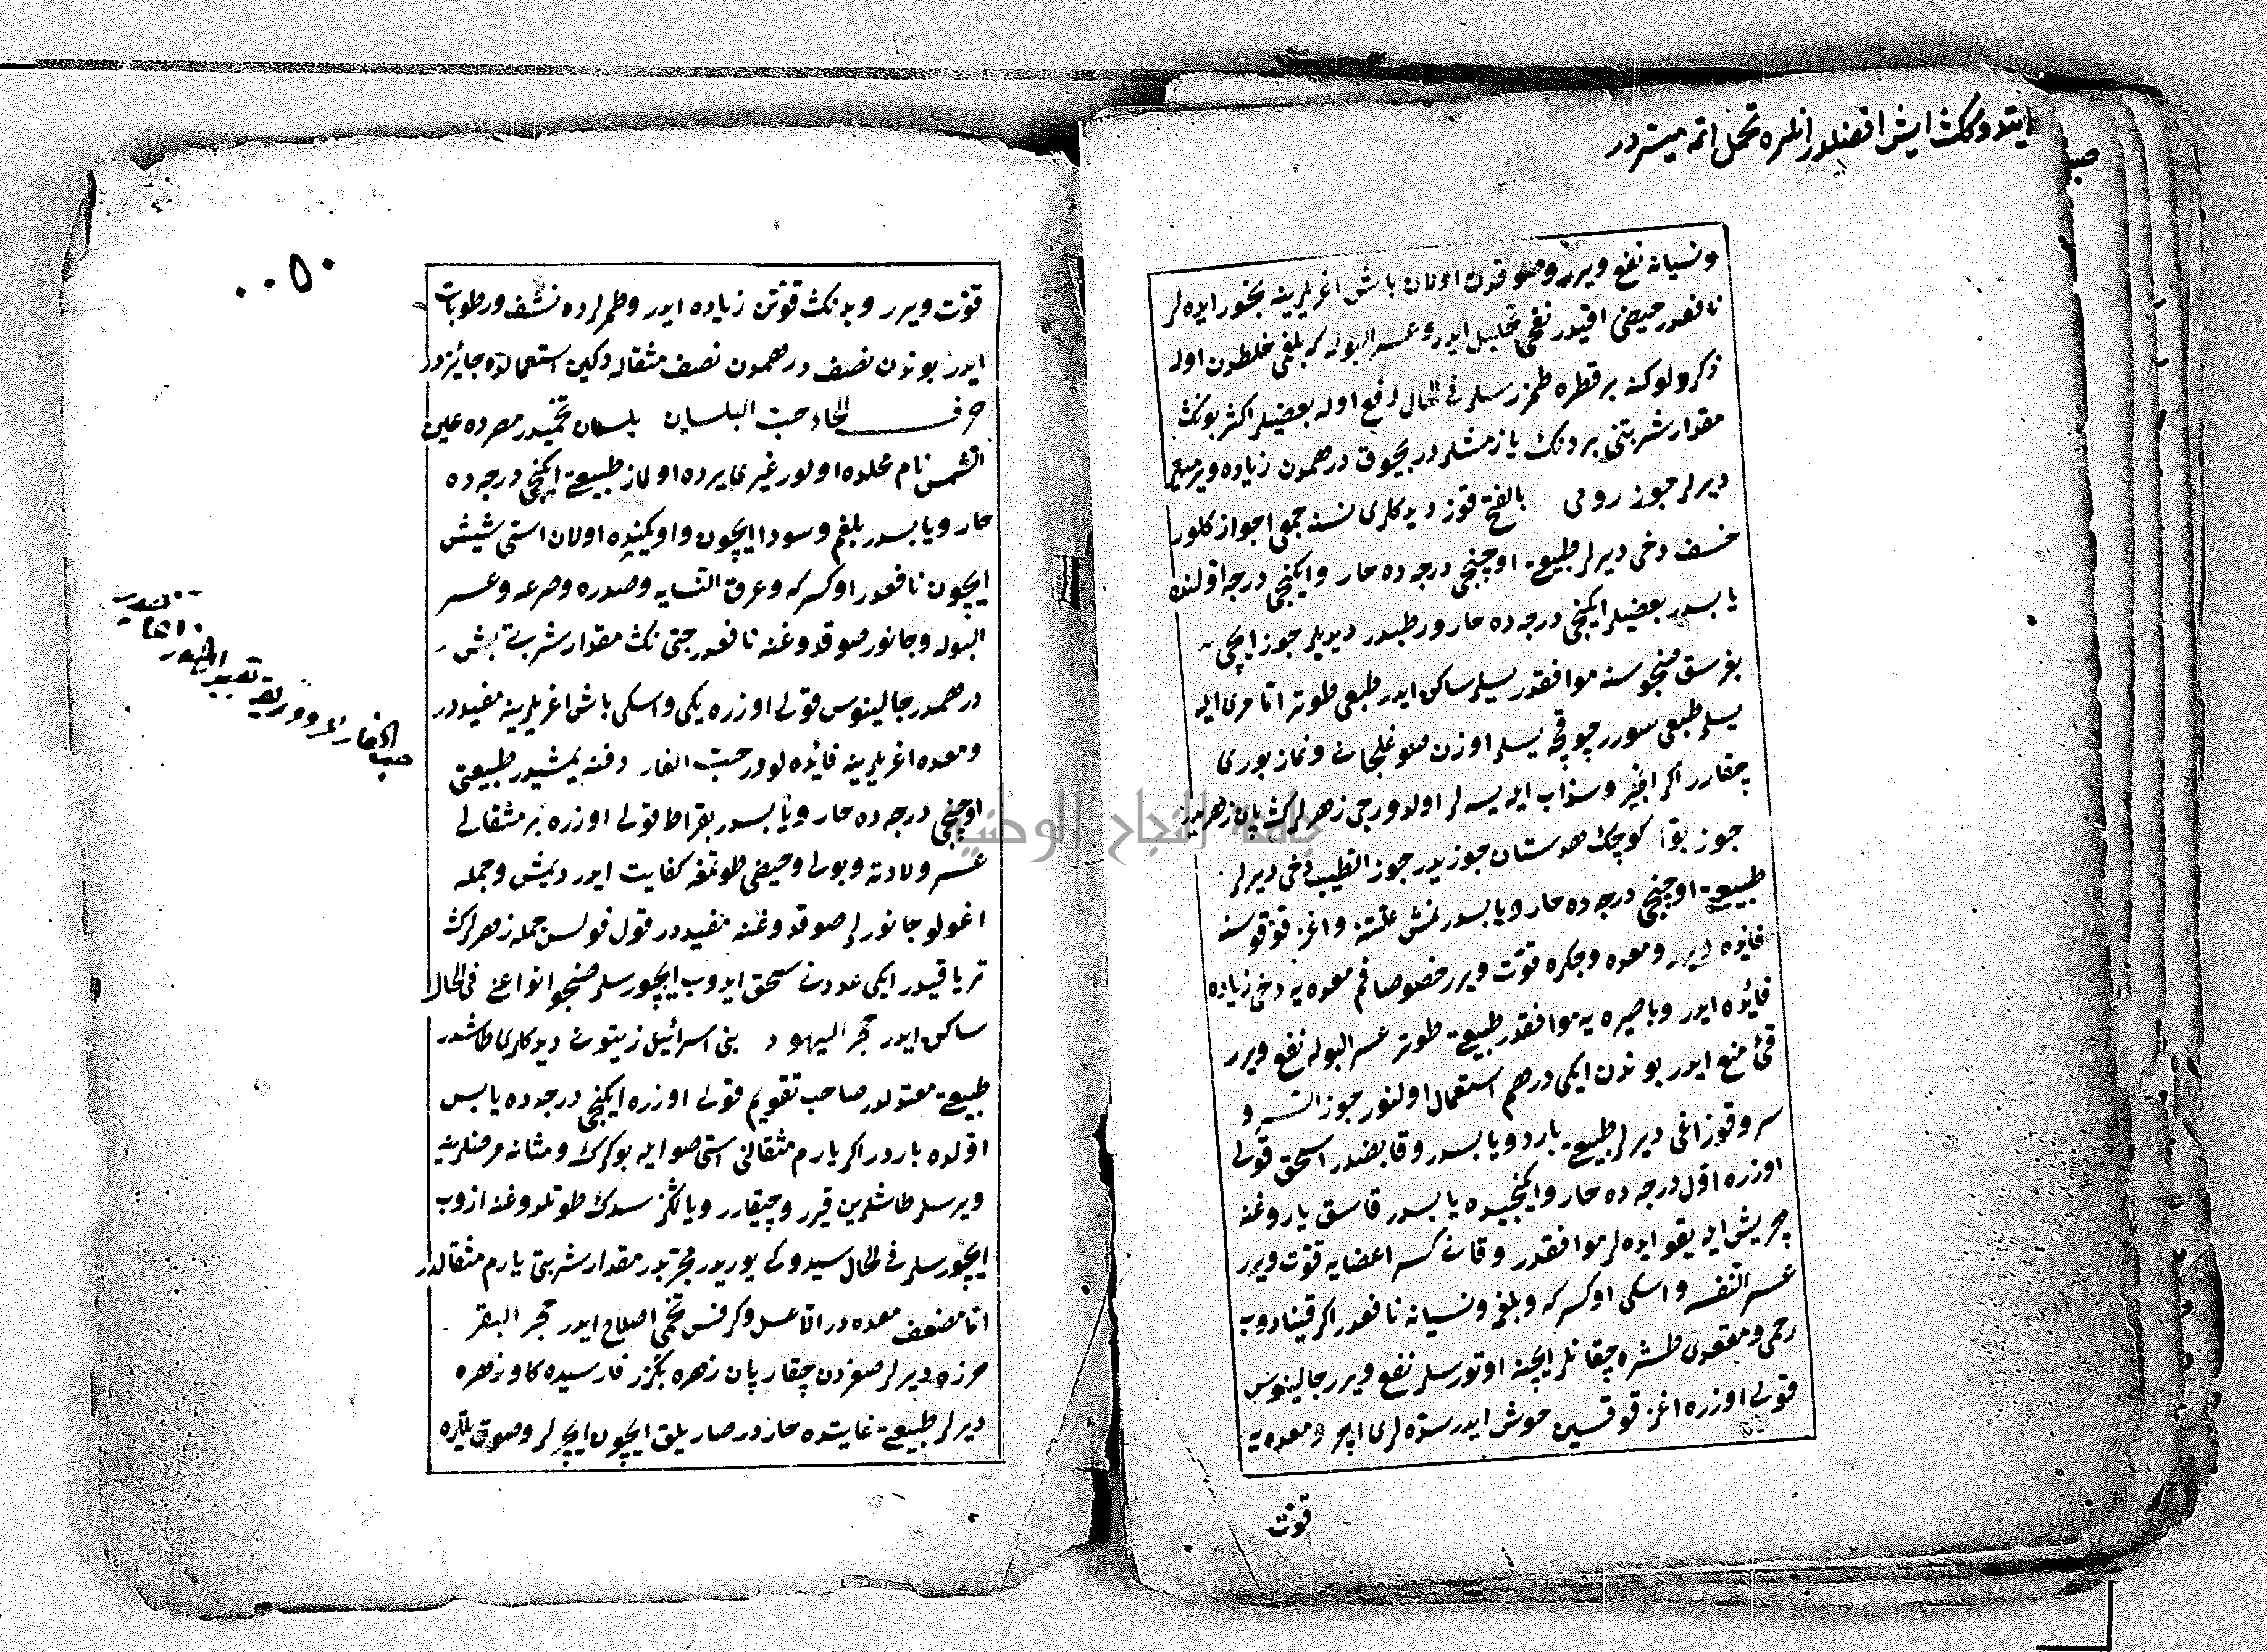 ایتدوکمک ایش افضلدر انلره تحمل اتمه میسردر
ونسیانه نفع ویرر وصوقدن اولان باش اغریلرینه بخور ایده لر
نافعدر حیضی اقیدر نفخی تحلیل ایدر وعسر البوله که بلغمی خلطدن اوله
ذکر ولوکنه بر قطره طمزرسلر فی الحال دفع اوله بعضیلر اکثر بونک
مقدار شربتنی بر دنک یازمشلر در بچوق درهمدن زیاده ویرمیه
دیرلر جوز رومی بالفتح قوز دیدکلری نسنه جمعی اجواز کلور
خسف دخی دیرلر طبیعتی اوچنجی درجه ده حار وایکنجی درجه اولنده
یابسدر بعضیلر ایکنجی درجه ده حار ورطبدر دیدیلر جوز ایچی
بغرسق صنجوسنه موافقدر یسلر ساکن ایدر طبعی طوتر اتا مری ایله
یسلر طبعی سورر چوقجه یسلر اوزن صوغلجانی ونماز بوری
چقارر اکر انجیر وسذاب ایله یسه لر اولدورجی زهرلرک پان زهریدر
جوز بوّا کوچک هندستان جوزیدر جوز الطیب دخی دیرلر
طبیعتی اوچنجی درجه ده حار ویابسدر نمش علتنه واغز قوقوسنه
فائده ویرر ومعده وجکره قوّت ویرر خصوصا فم معده یه دخی زیاده
فائده ایدر وباصره یه موافقدر طبیعتی طوتر عسر البوله نفع ویرر
قئ منع ایدر بوندن ایکی درهم استعمال اولنور جوز السرو
سرو قوزاغی دیرلر طبیعتی بارد ویابسدر وقابضدر اسحق قولی
اوزره اوّل درجه ده حار وایکنجیده یابسدر قاسق یاروغنه
چریش ایله یقو ایده لر موافقدر وقانی کسر اعضایه قوّت ویرر
عسر النفسه واسکی اوکسرکه وبلغمه ونسیانه نافعدر اکر قینادوب
رحمی ومقعدی طشره چقانلر ایچنه اوتورسلر نفع ویرر جالینوس
قولی اوزره اغز قوقسین خوش ایدر سدّه لری اچر ومعده یه
قوّت
٠٠٥٠
قوّت ویرر وبدنک قوّتن زیاده ایدر وطمرلرده نشف ورطوبات
ایدر بوندن نصف درهمدن نصف مثقاله دکین استعمالده جائزدر
حرف الحاء حبّ البلسان بلسان تخمیدر مصرده عین
الشمس نام محلده اولور غیری یرده اولماز طبیعتی ایکنجی درجه ده
حار ویابسدر بلغم وسودا ایچون واویکنده اولان استی شیش
ایچون نافعدر اوکسرکه وعرق النسایه وصدره وصرعه وعسر
البوله وجانور صوقدوغنه نافعدر حبّی نک مقدار شربتی بش
درهمدر جالینوس قولی اوزره یکی واسکی باش اغریلرینه مفیددر
ومعده اغریلرینه فائده لودر حبّ الغار دفنه یمشیدر طبیعتی
اوچنجی درجه ده حار ویابسدر بقراط قولی اوزره بر مثقالی
عسر ولادته وبولی وحیضی طوتمغه کفایت ایدر دیمش وجمله
اغولو جانورلر صوقدوغنه مفیددر قول فولس جمله زهرلرک
تریاقیدر ایکی عددنی سحق ایدوب ایچورسلر صنجو انواعنی فی الحال
ساکن ایدر حجر الیهود بنی اسرائیل زیتونی دیدکلری طاشدر
طبیعتی معتدلدر صاحب تقویم قولی اوزره ایکنجی درجه ده یابس
اوّلده باردر اکر یارم مثقالنی استی صو ایله بوکرک ومثانه مرضلرینه
ویرسلر طاشلرین قیرر وچیقارر ویالکز سدک طوتلدوغنه ازوب
ایچورسلر فی الحال سیدوکی یوریدر مجرّبدر مقدار شربتی یارم مثقالدر
اتا مضعف معده در الّا عسل وکرفس تخمی اصلاح ایدر حجر البقر
مرزه دیرلر صغردن چقار پان زهره بکزر فارسیده کاو زهره
دیرلر طبیعتی غایتده حاردر صاریلق ایچون ایچرلر وصوق یللره
حب الغار